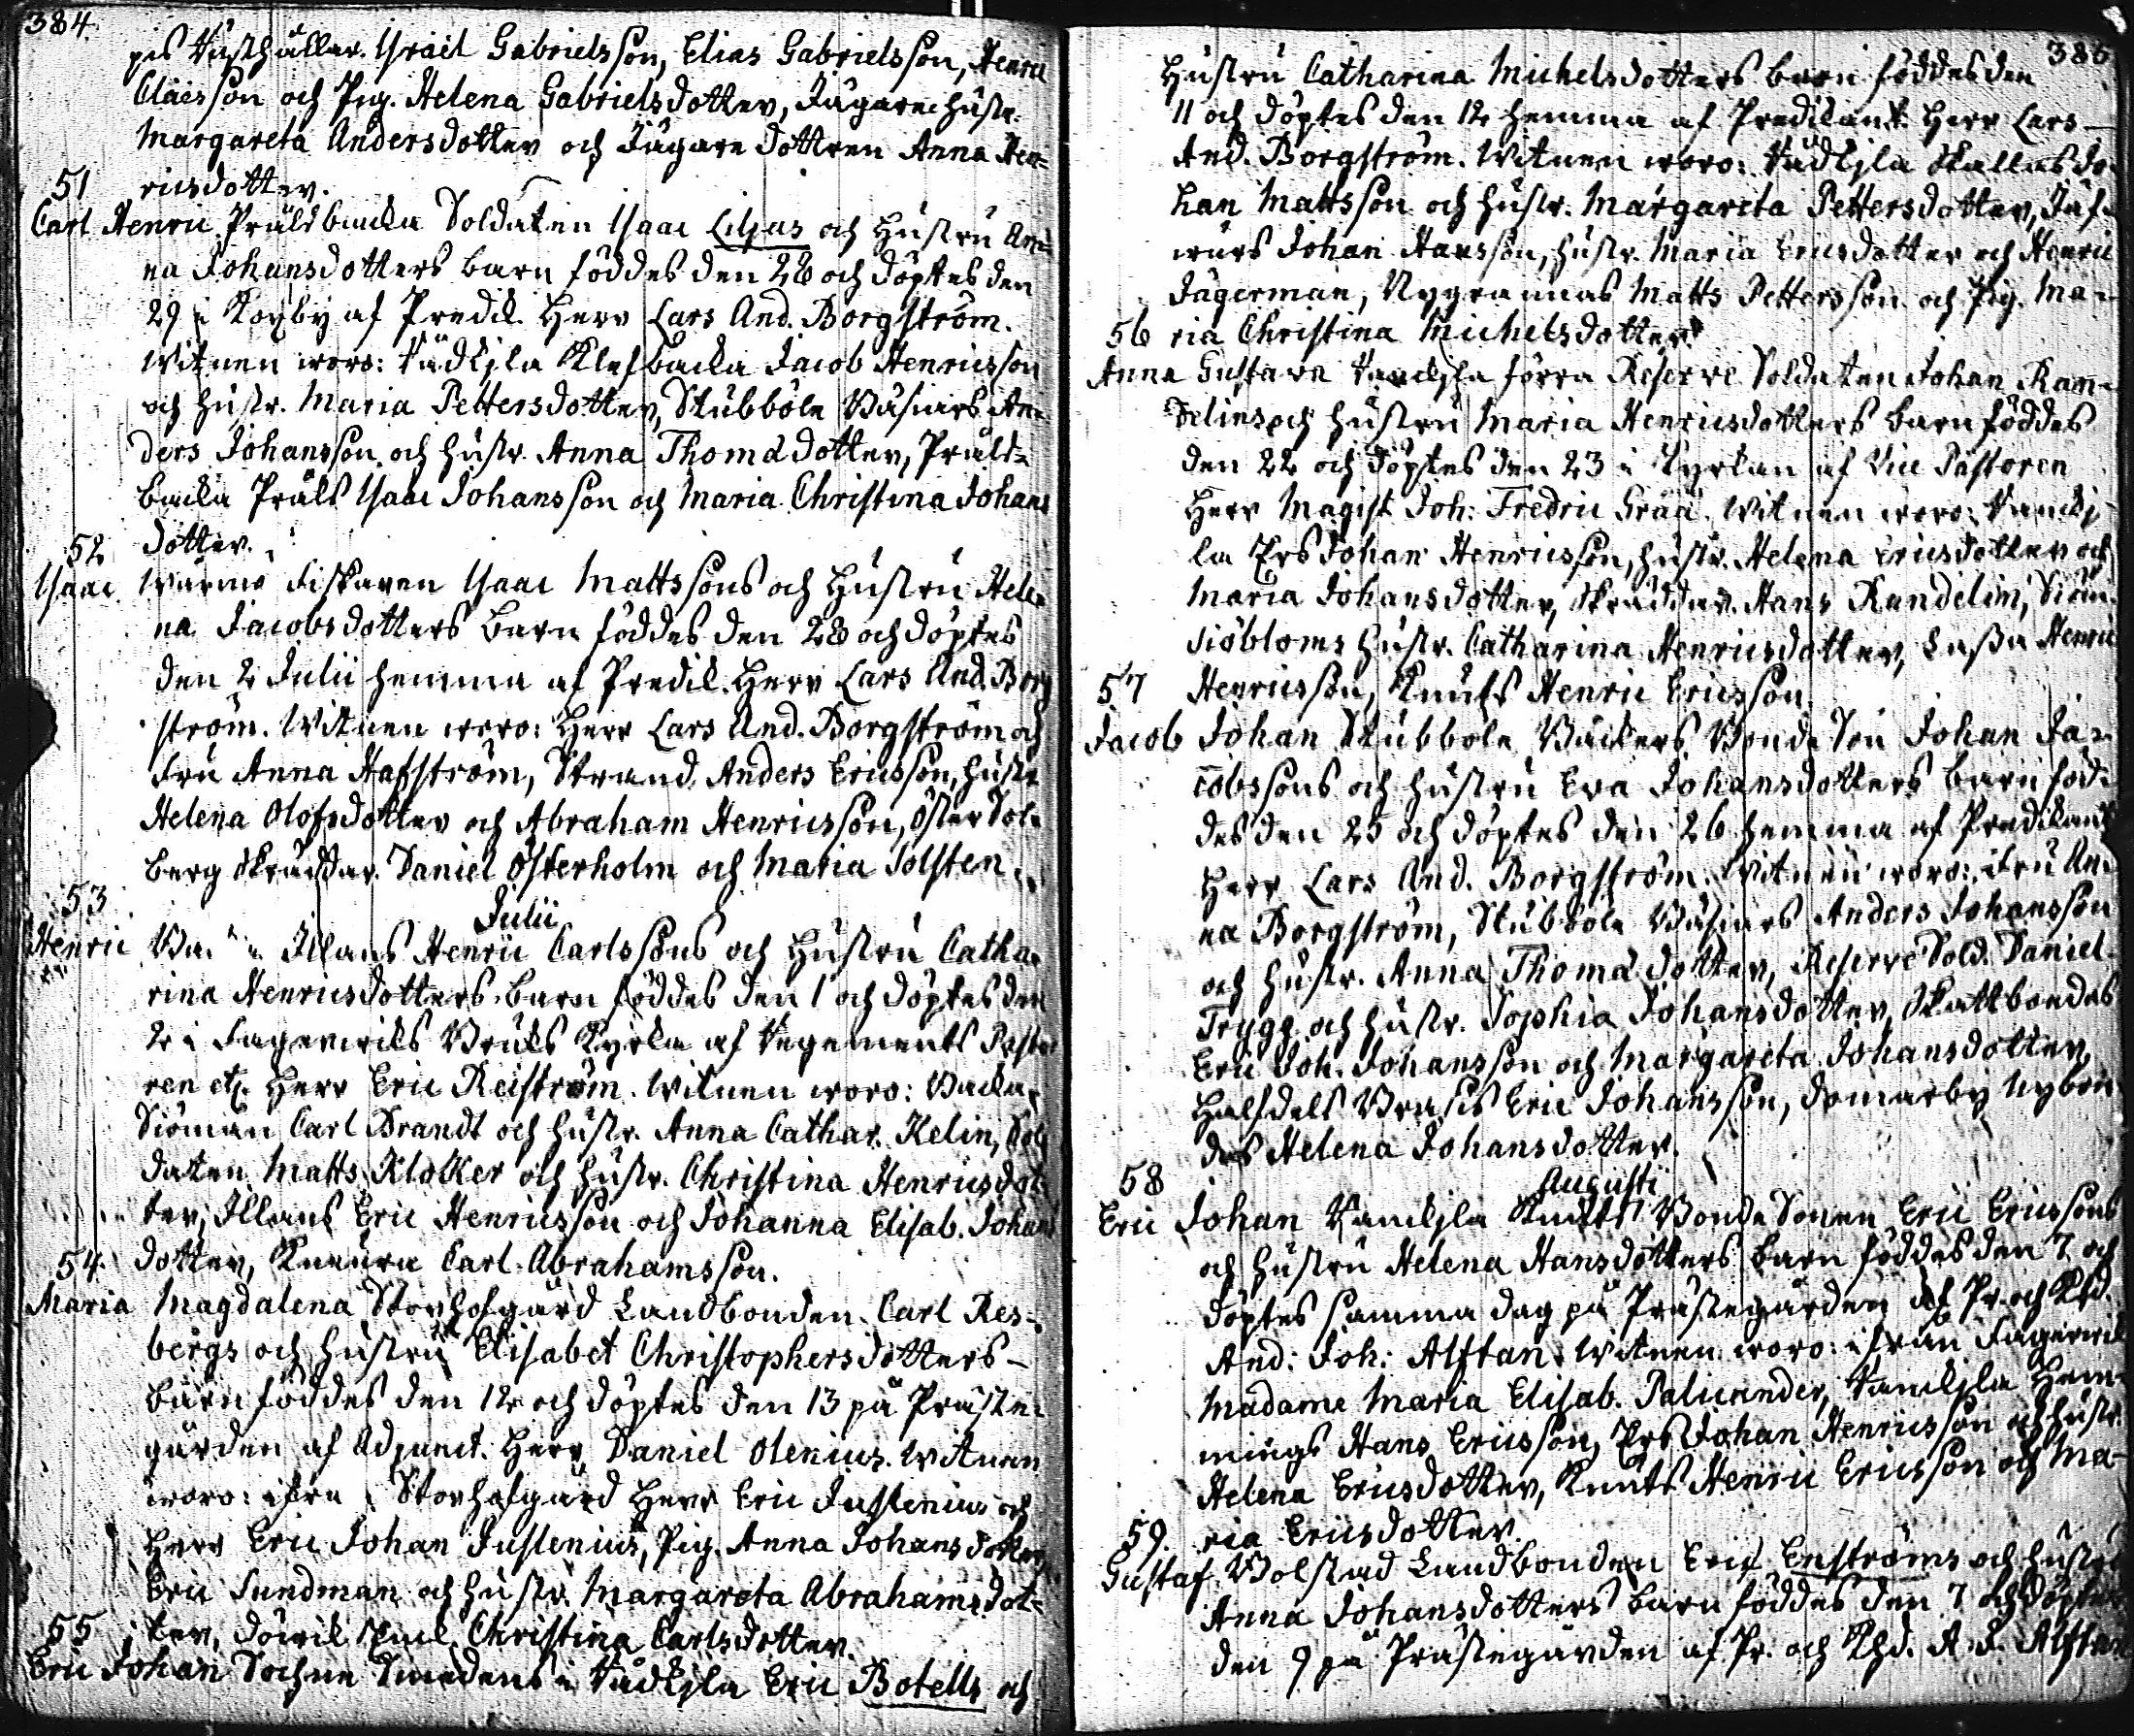 384.
pis Rusthållar. Ysrael Gabrielsson, Elias Gabrielsson, Henric
Claësson och Pig. Helena Gabrielsdotter, Jägare hustr.
Margareta Andersdotter och Jägare dottren Anna Hen=
51 ricsdotter.
Carl Henric Präst backa Soldaten Ysaac Liljas och Hustru An=
na Johansdotters barn föddes den 28 och döptes den
29 i Korby af Predik. Herr Lars And. Borgström.
Witnen woro: Rådkjla Klefbacka Jacob Henricsson
och hustr. Maria Pettersdotter, Stubböle Bäsjars An=
ders Johansson och hustr. Anna Thomædotter, Präst=
backa Präls Ysaac Johansson och Maria Christina Johans
52 dotter.
Ysaac Wärmö Fiskaren Ysaac Mattssons och Hustru Hele=
na Jacobsdotters barn föddes den 28 och döptes
den 2 Julii hemma af Predik. Herr Lars And. Borg
ström. Witnen woro: Herr Lars And. Borgström och
Fru Anna Hafström, Strand. Anders Ericsson, hustr
Helena Olofsdotter och Abraham Henricsson, Öster Sol=
berg skräddar. Daniel Österholm och Maria Solsten.
53 Julii
Henric Illans Henric Carlssons och Hustru Catha=
rina Henricsdotters barn föddes den 1 och döptes den
2 i Fagerwiks Bruks Kyrka af Regements Pasto
ren etc. Herr Eric Reiström. Witnen woro: Backa
Siöman Carl Brandt och hustr. Anna Cathar. Kelin, Sol
daten Matts Klocker och hustr. Christina Henricsdot=
ter, Illans Eric Henricsson och Johanna Elisab. Johans
54. dotter, Carl Abrahamsson.
Maria Magdalena Storhofgård Landbonden Carl Res=
bergs och hustru Elisabet Christophersdotters
barn föddes den 12 och döptes den 13 på Präste=
gården af Adjunct. Herr Daniel Olenius. Witnen
woro: ifrån Storhofgård Herr Eric Juslenius och
Herr Eric Johan Juslenius, Pig. Anna Johansdotter,
Eric Sundman och hustr. Margareta Abrahamsdot=
55 ter, Christina Carlsdotter.
Eric Johan Sochne Smedens i Rådkjla Eric Botells och
385
Hustru Catharina Michelsdotters barn föddes den
11 och döptes den 12 hemma af Predikant. Herr Lars
And. Borgström. Witnen woro: Rådkjla Skallas Jo=
han Mattsson och hustr. Margareta Pettersdotter,
Johan Hansson, hustr. Maria Ericsdotter och Henric
Jägerman, Nygrannas Matts Pettersson och Pig. Ma=
56 ria Christina Michelsdotter.
Anna Gustava förra Reserve Soldaten Johan Ram=
delins och hustru Maria Henricsdotters barn föddes
den 22 och döptes den 23 i Kyrkan af Vice Pastoren
Herr Magist. Joh. Fredric Gråå. Witnen woro: Vanckj=
la Ers Johan Henricsson, hustr. Helena Ericsdotter och
Maria Johansdotter, Skräddar. Hans Rundelin, Siöm.
Siöbloms hustr. Catharina Henricsdotter, Lassa Henric
57 Henricsson, Knuts Henric Ericsson.
Jacob Johan Stubböle Bäckers Bonde Son Johan Ja=
cobssons och hustru Eva Johansdotters barn föd=
des den 25 och döptes den 26 hemma af Predikant
Herr Lars And. Borgström. Witnen woro: Fru An=
na Borgström, Stubböle Bäsjars Anders Johansson
och hustr. Anna Thomædotter, Reserve Sold. Daniel
Trygg och hustr. Sophia Johansdotter, Skattbondes
Eric Joh. Johansson och Margareta Johansdotter,
Halfdels Brasis Eric Johansson, Domarby Nybon=
des Helena Johansdotter.
58 Augusti
Eric Johan Vanckjla Knuts Bonde Sonen Eric Ericssons
och Hustru Helena Hansdotters barn föddes den 7 och
döptes samma dag på Prästegården af Pr. och Khd.
And: Joh: Alftan. Witnen woro: ifrån Fagerwik
Madame Maria Elisab. Palicander, Vanckjla Hem=
mings Hans Ericsson, Ers Johan Henricsson och hustr.
Helena Ericsdotter, Knuts Henric Ericsson och Ma=
59. ria Ericsdotter.
Gustaf Bolstad Landbonden Eric Enströms och hustru
Anna Johansdotters barn föddes den 7 och döptes
den 9 på Prästegården af Pr. och Khd. A. J. Alftan